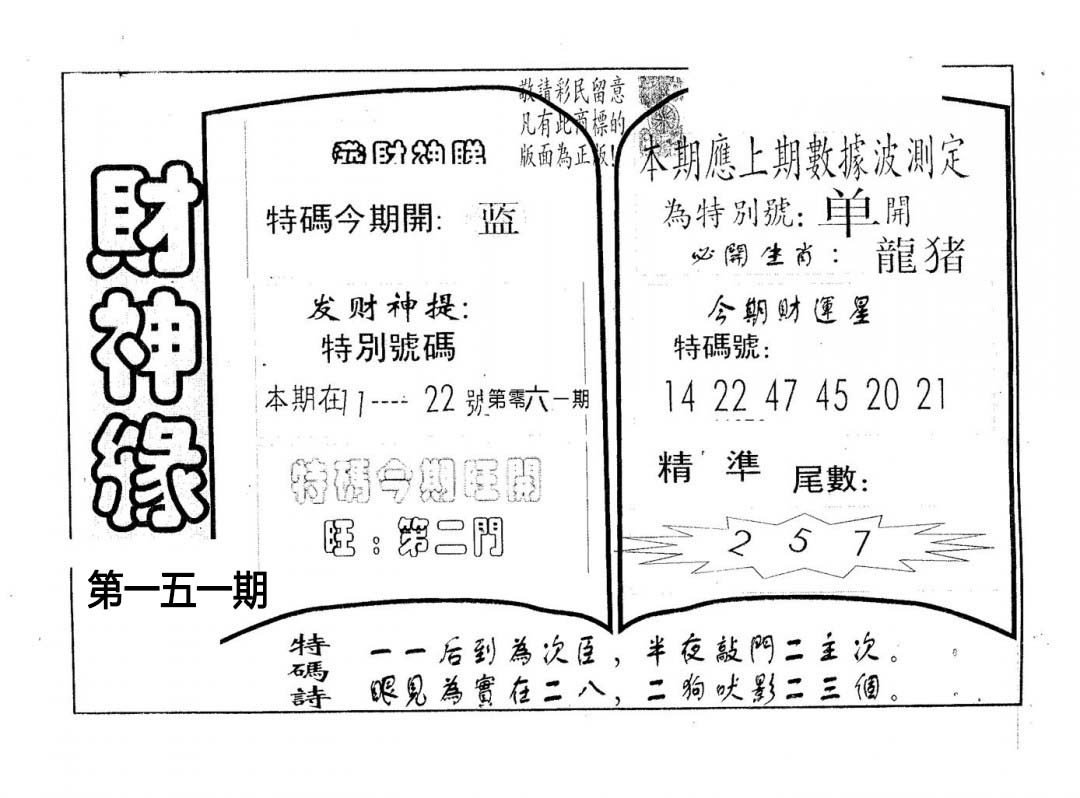 財神緣
第一五一期
敬請彩民留意
凡有此商標的
版面為正版!
特碼今期開: 蓝
发财神提:
特別號碼
本期在11----22號第零六一期
特碼今期旺開
旺:第二門
本期應上期數據波測定
為特別號: 单開
必開生肖: 龍猪
今期財運星
特碼號:
14 22 47 45 20 21
精 準 尾數:
2 5 7
特碼詩
一一后到為次臣,半夜敲門二主次。
眼見為實在二八,二狗吠影二三個。